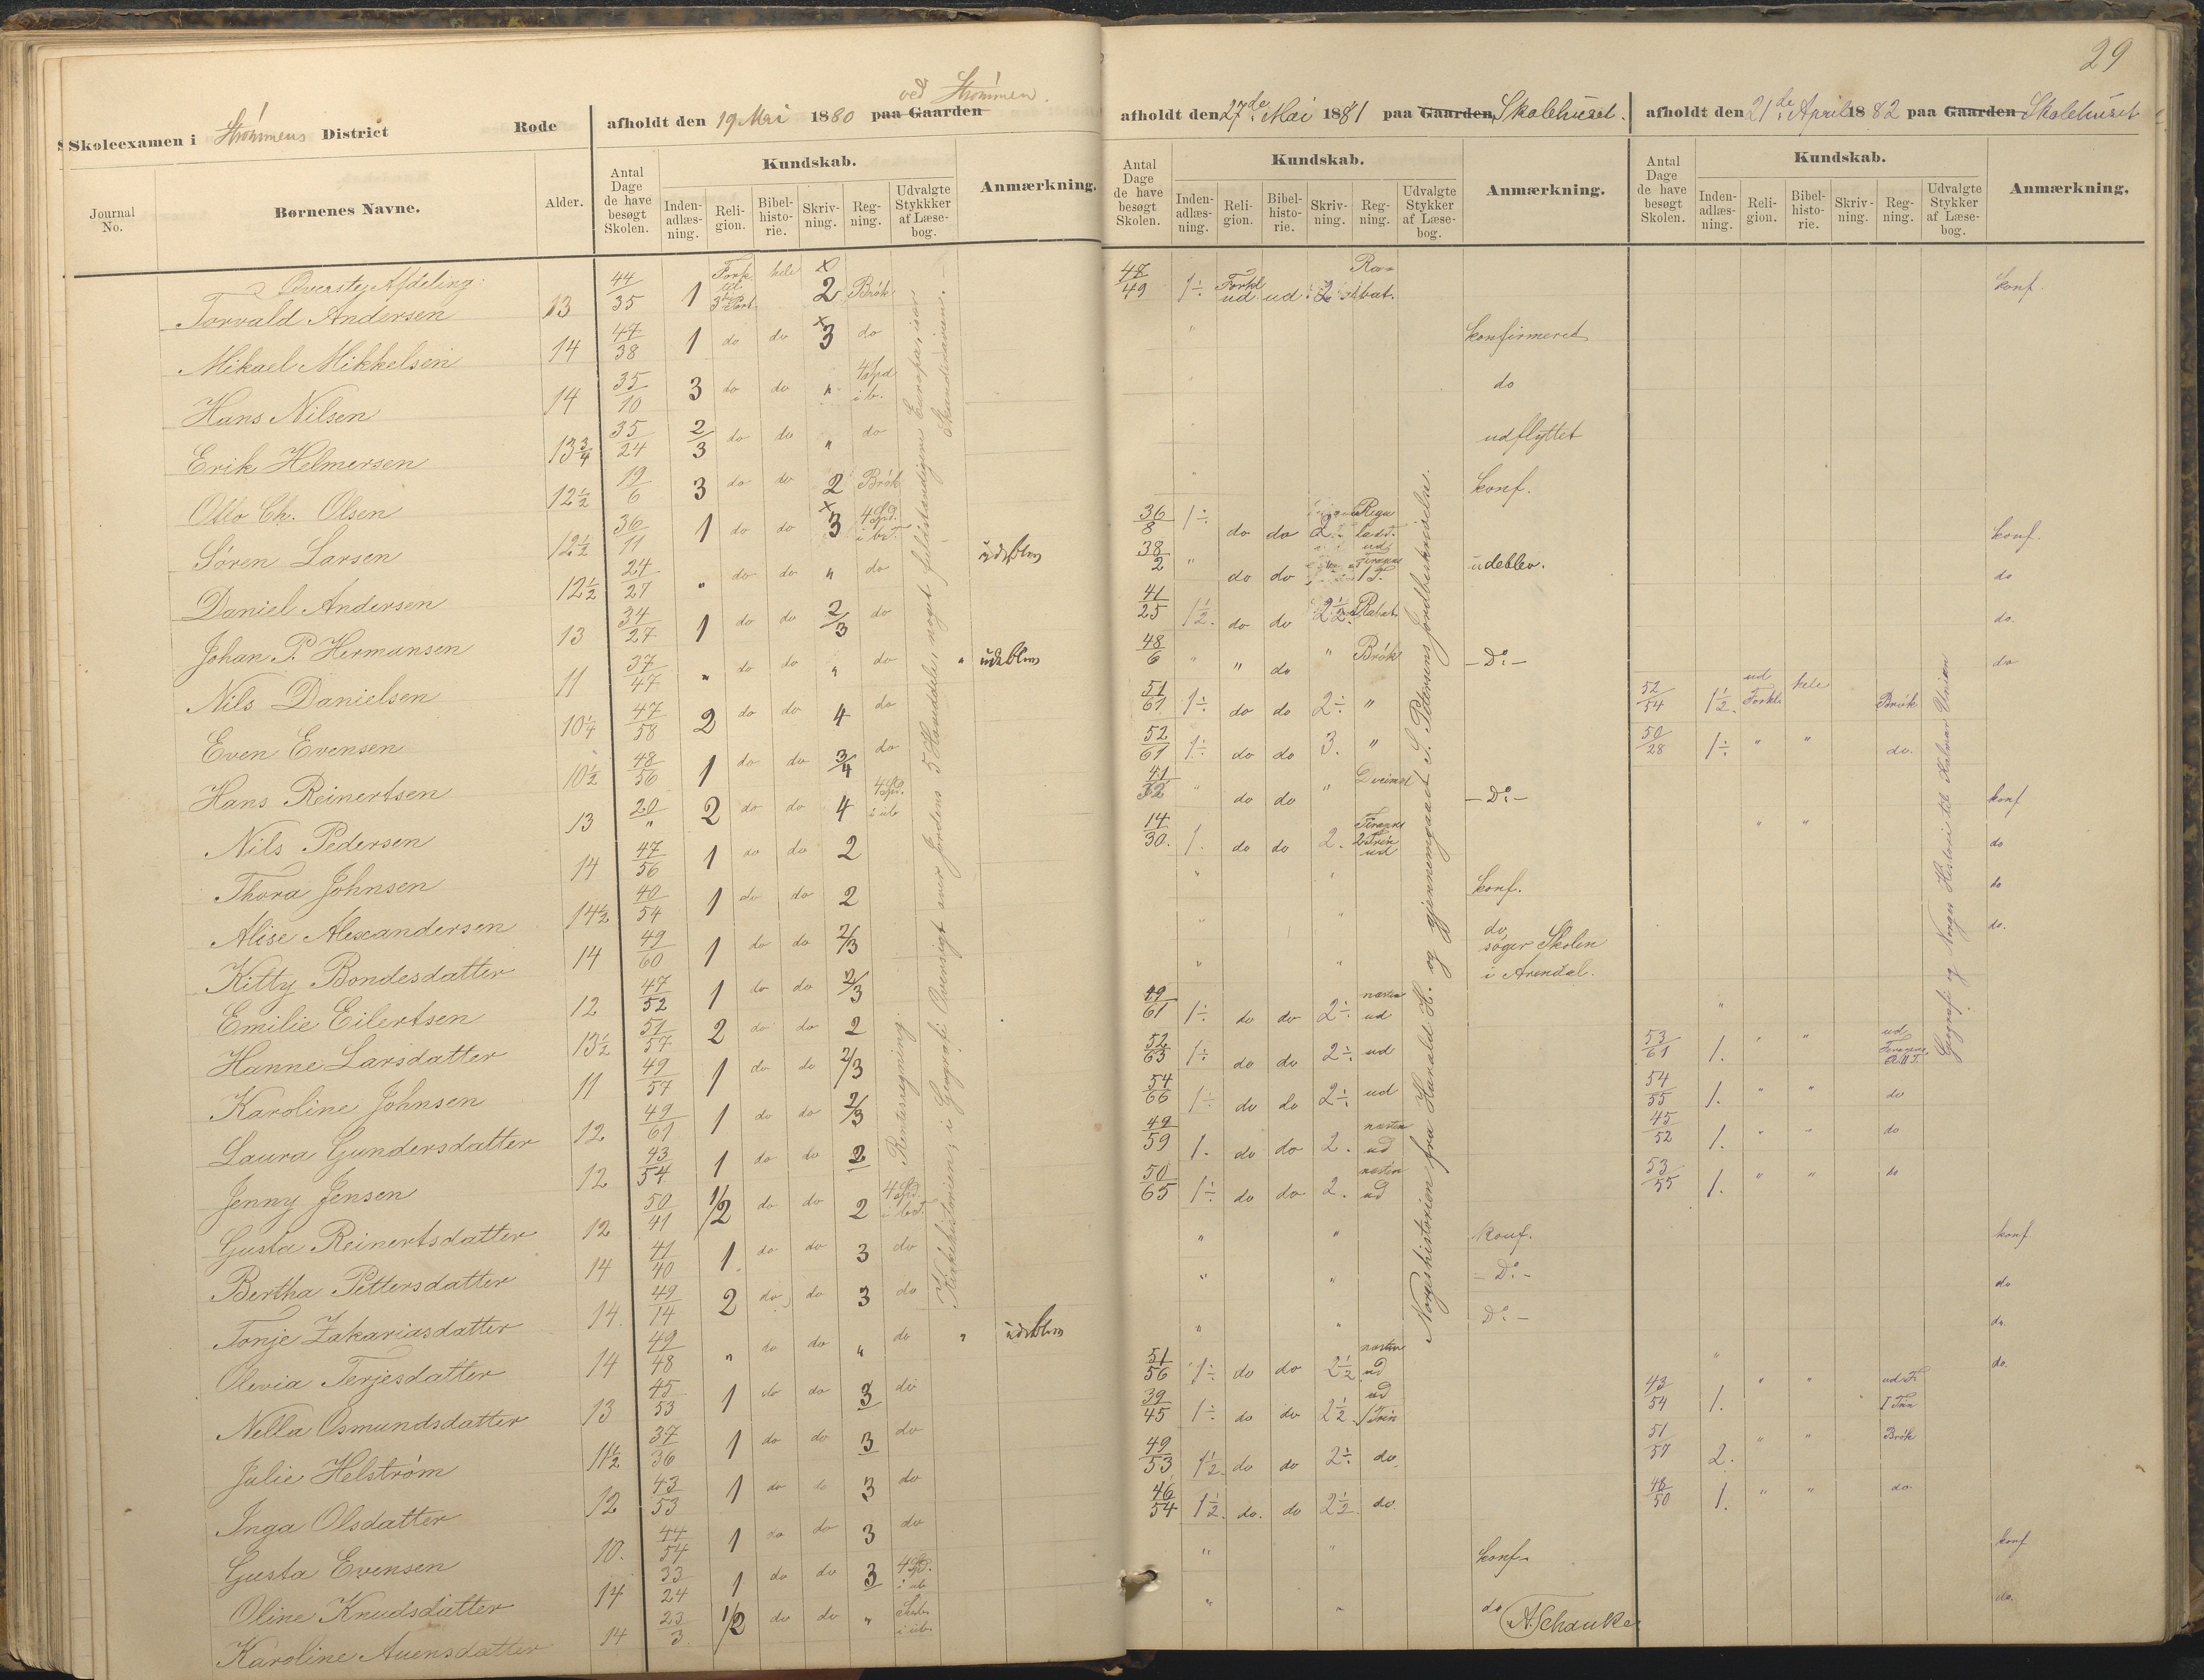 29
Skoleexamen i Strømmens District Rode
afholdt den 19 Mai 1880 paa Gaarden ved Strømmen.
afholdt den 27de Mai 1881 paa Gaarden Skolehuset.
afholdt den 21de April 1882 paa Gaarden Skolehuset
Journal No. Børnenes Navne. Alder. Antal Dage de have besøgt Skolen. Kundskab. Inden-adlæs-ning. Reli-gion. Bibel-histo-rie. Skriv-ning. Reg-ning. Udvalgte Stykkker af Læse-bog. Anmærkning.
Antal Dage de have besøgt Skolen. Kundskab. Inden-adlæs-ning. Reli-gion. Bibel-histo-rie. Skriv-ning. Reg-ning. Udvalgte Stykker af Læse-bog. Anmærkning.
Antal Dage de have besøgt Skolen. Kundskab. Inden-adlæs-ning. Reli-gion. Bibel-histo-rie. Skriv-ning. Reg-ning. Udvalgte Stykker af Læse-bog. Anmærkning.
Øverste Afdeling:
Torvald Andersen 13 44/35 1 hele 2 Brøk 48/49 1÷ ud ud konf.
Mikael Mikkelsen 14 47/38 1 do do 3 do konfirmeret
Hans Nilsen 14 35/10 3 do do " do
Erik Helmersen 13 3/4 35/24 2/3 do do " do udflyttet
Otto Ch. Olsen 12 1/2 19/6 3 do do 2 Brøk konf.
Søren Larsen 12 1/2 36/11 1 do do 3 36/8 1÷ do do konf.
Daniel Andersen 12 1/2 24/27 " do do " do udeblev 38/2 " do do udeblev. do
Johan P. Hermansen 13 34/27 1 do do 2/3 do 41/25 1 1/2. do do 2 1/2 Rabat do.
Nils Danielsen 11 37/47 " do do " do " udeblev 48/6 " " do " Brøk -Do- do
Even Evensen 10 1/4 47/58 2 do do 4 do 51/61 1÷ do do 2÷ " 52/54 1 1/2. ud Forkl. hele Brøk
Hans Reinertsen 10 1/2 48/56 1 do do 3/4 do 52/61 1÷ do do 3. " 50/28 1÷ " " do.
Nils Pedersen 13 20/" 2 do do 4 41/32 " do do " -Do- konf
Thora Johnsen 14 47/56 1 do do 2 14/30. 1. do do 2. do
Alise Alexandersen 14 1/2 40/54 1 do do 2 konf. do
Kitty Bondesdatter 14 49/60 1 do do 2/3 do, søger Skolen i Arendal. do.
Emilie Eilertsen 12 47/52 1 do do 2/3 49/61 1÷ do do 2÷ næsten ud
Hanne Larsdatter 13 1/2 51/57 2 do do 2 52/63 1÷ do do 2÷ ud 53/61 1. " " ud
Karoline Johnsen 11 49/57 1 do do 2/3 54/66 1÷ do do 2÷ ud 54/55 1. " " do
Laura Gundersdatter 12 49/61 1 do do 2/3 49/59 1. do do 2. næsten ud 45/52 1. " " do
Jenny Jensen 12 43/54 1 do do 2 50/65 1÷ do do 2. næsten ud 53/55 1. " " do
Gusta Reinertsdatter 12 50/41 1/2 do do 2 konf. konf
Bertha Pettersdatter 14 41/40 1. do do 3 do -Do- do
Tonje Zakariasdatter 14. 49/14 2 do do 3 do Do- do.
Olevia Terjesdatter 14 49/48 " do do " do " udeblev 51/56 1÷ do do 2 1/2 næsten ud do.
Nella Osmundsdatter 13 45/53 1 do do 3 do 39/45 1÷ do do 2 1/2. ud 1 Trin 43/54 1. " "
Julie Helstrøm 11 1/2 37/36 1 do do 3 do 49/53 1 1/2. do do 2÷ do 51/57 2. " " Brøk
Inga Olsdatter 12 43/53 1 do do 3 do 46/54 1 1/2. do. do 2 1/2. do 48/50 1. " " do.
Gusta Evensen 10. 44/54 1 do do 3 do konf. konf
Oline Knudsdatter 14 33/24 1 do do 3 do do.
Karoline Auensdatter 14 23/3. 1/2 do do "
Kirkehistorien; i Geografi Oversigt over Jordens 5 Hoveddele, noget fuldstændigere Europa, især Skandinavien.
Rentesregning.
Norgeshistorien fra Harald H. og gjennemgaaet S. Petersens Jordbeskrivelse.
Geografi og Norges Historie til Kalmar Union
A. Schanke